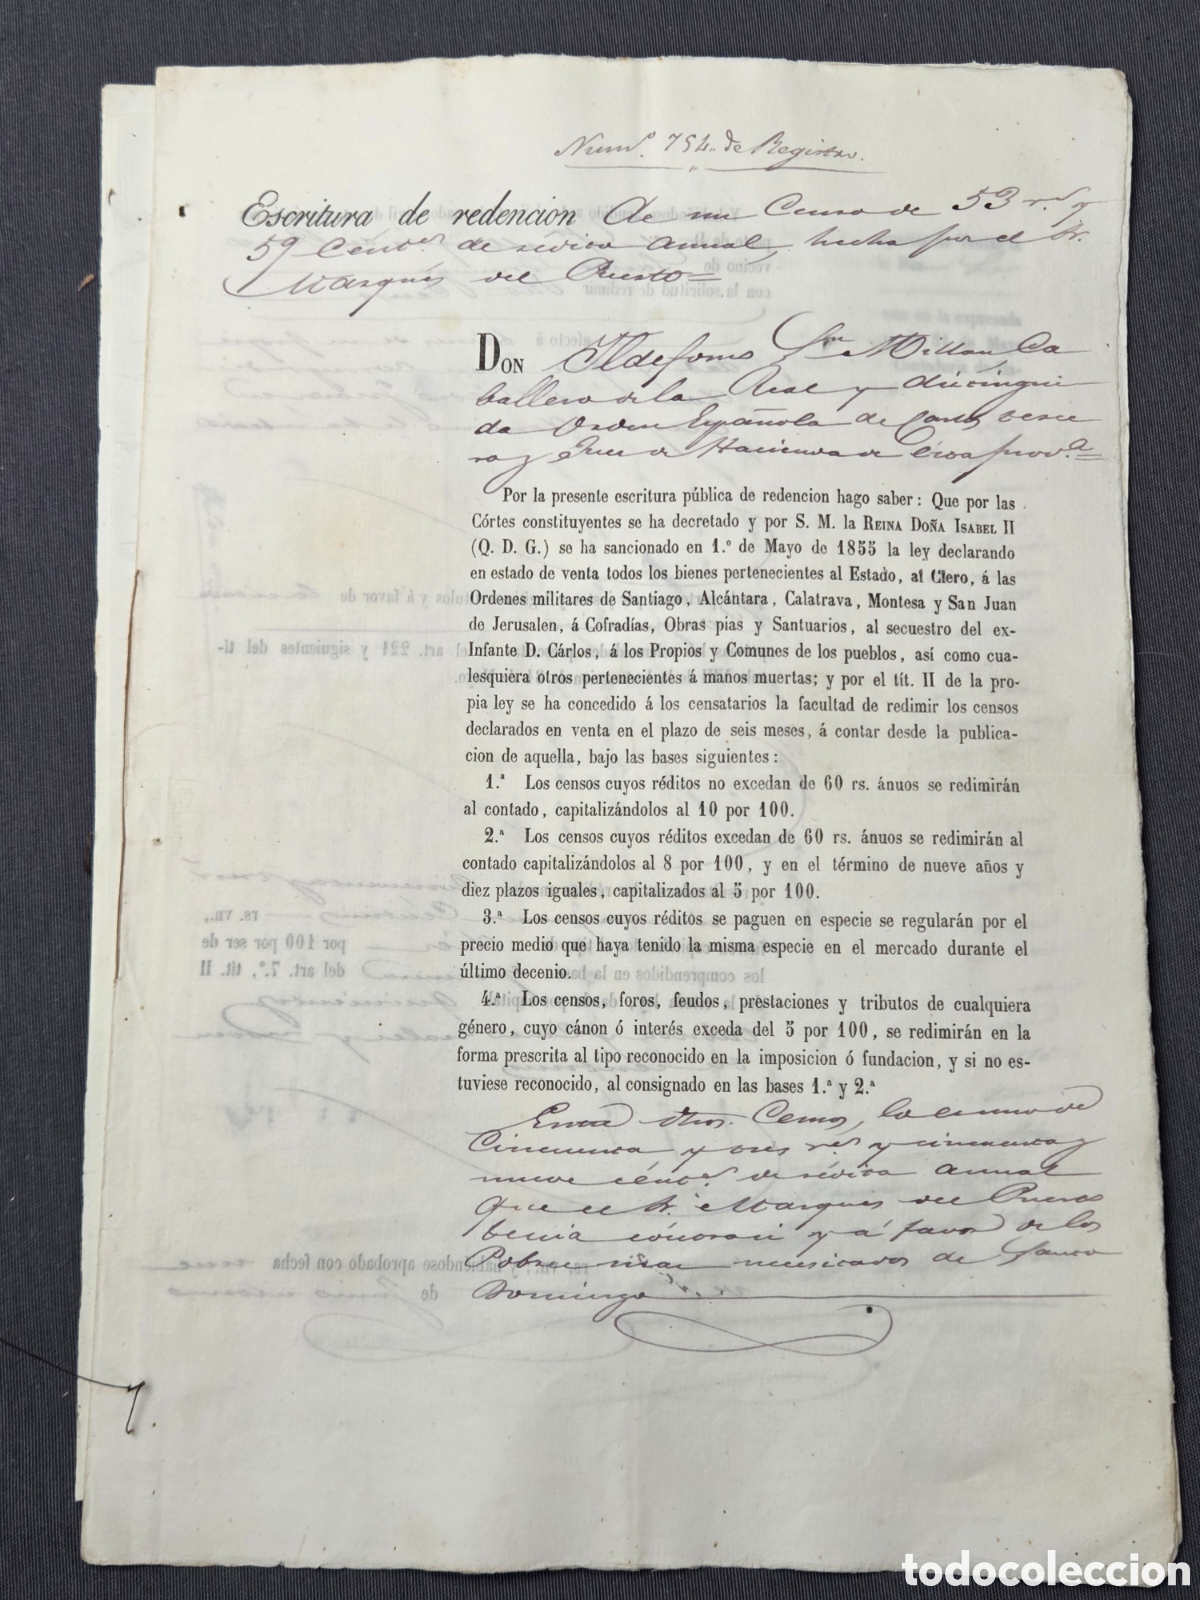 Num.º 754 de Registro.
Escritura de redencion de un Censo de 53 r.s y
59 Cént.s de rédito anual, hecha por el Sr.
Marqués del Puerto=
DON Ildefonso Sn. Millan, Ca
ballero de la Real y distingui
da Orden Española de Carlos terce
ro y Juez de Hacienda de esta prov.a=
Por la presente escritura pública de redencion hago saber: Que por las
Córtes constituyentes se ha decretado y por S. M. la REINA DOÑA ISABEL II
(Q. D. G.) se ha sancionado en 1.º de Mayo de 1855 la ley declarando
en estado de venta todos los bienes pertenecientes al Estado, al Clero, á las
Ordenes militares de Santiago, Alcántara, Calatrava, Montesa y San Juan
de Jerusalen, á Cofradías, Obras pias y Santuarios, al secuestro del ex-
Infante D. Cárlos, á los Propios y Comunes de los pueblos, así como cua-
lesquiera otros pertenecientes á manos muertas; y por el tít. II de la pro-
pia ley se ha concedido á los censatarios la facultad de redimir los censos
declarados en venta en el plazo de seis meses, á contar desde la publica-
cion de aquella, bajo las bases siguientes:
1.ª Los censos cuyos réditos no excedan de 60 rs. ánuos se redimirán
al contado, capitalizándolos al 10 por 100.
2.ª Los censos cuyos réditos excedan de 60 rs. ánuos se redimirán al
contado capitalizándolos al 8 por 100, y en el término de nueve años y
diez plazos iguales, capitalizados al 5 por 100.
3.ª Los censos cuyos réditos se paguen en especie se regularán por el
precio medio que haya tenido la misma especie en el mercado durante el
último decenio.
4.ª Los censos, foros, feudos, prestaciones y tributos de cualquiera
género, cuyo cánon ó interés exceda del 5 por 100, se redimirán en la
forma prescrita al tipo reconocido en la imposicion ó fundacion, y si no es-
tuviese reconocido, al consignado en las bases 1.ª y 2.ª
Entre otros Censos, lo es uno de
Cincuenta y tres r.s y cincuenta y
nueve cént.s de rédito anual
que el Sr. Marqués del Puerto
tenia contra si y á favor de los
Pobres mas necesitados de Santo
Domingo
todocoleccion